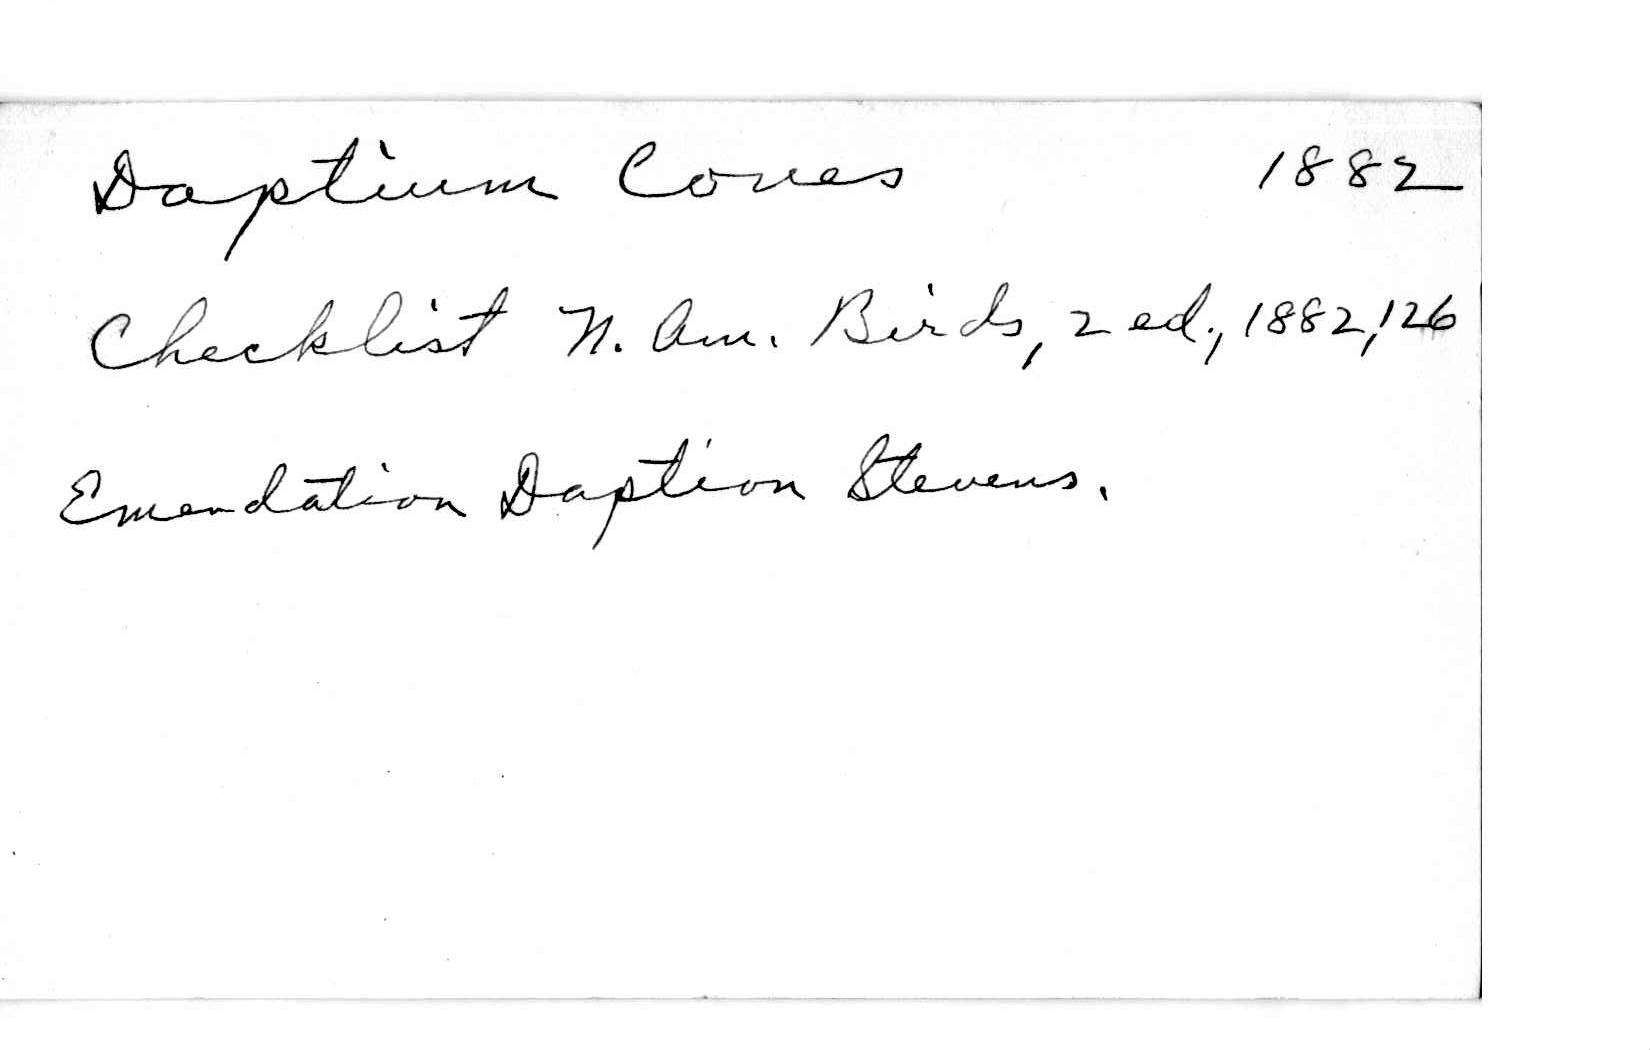 Daptium Coues 1882
Checklist N. Am. Birds, 2 ed., 1882, 126
Emendation Daption Stevens.